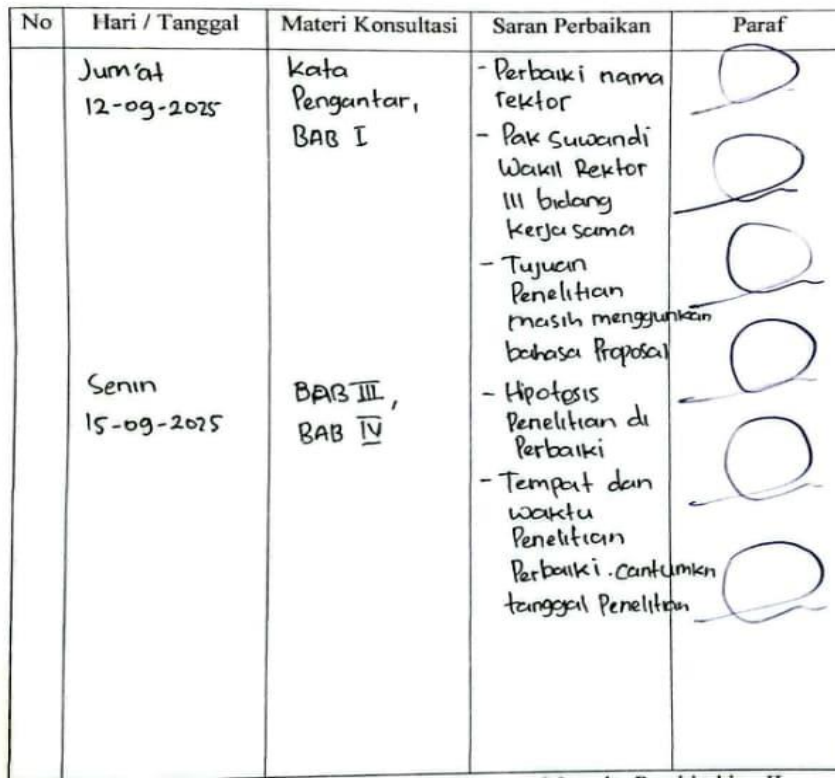 No Hari / Tanggal Materi Konsultasi Saran Perbaikan Paraf
Jum'at
12-09-2025
Kata
Pengantar,
BAB I
- Perbaiki nama
rektor
- Pak Suwandi
Wakil Rektor
III bidang
kerja sama
- Tujuan
Penelitian
masih menggunkan
bahasa Proposal
Senin
15-09-2025
BAB III,
BAB IV
- Hipotesis
Penelitian di
Perbaiki
- Tempat dan
waktu
Penelitian
Perbaiki. cantumkn
tanggal Penelitian